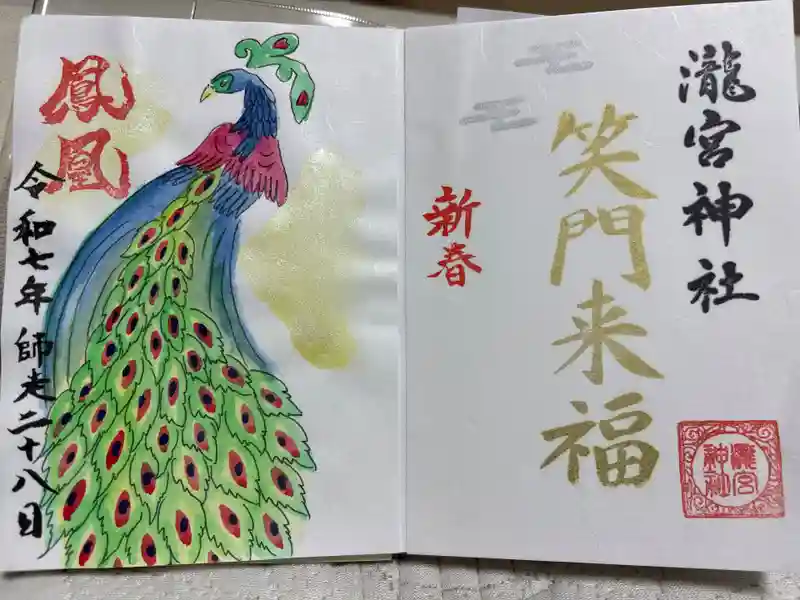 瀧宮神社
笑門来福
新春
瀧宮
神社
鳳凰
令和七年師走二十八日